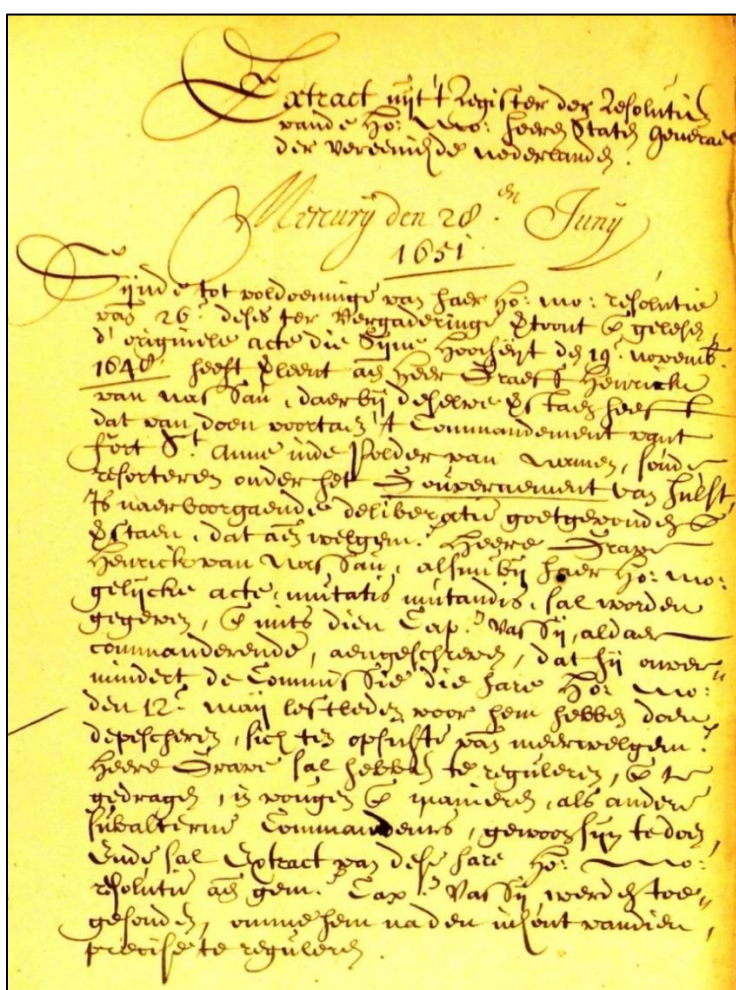 Extract uijt 't Register der Resolutien
vande Ho: Mo: Heeren Staten Generael
der Vereenichde Nederlanden.
Mercurij den 28.en Junij
1651.
Sijnde tot voldoeninge van haer Ho: Mo: resolutie
van 26.e deses ter Vergaderinge gelesen,
d' originele acte die Sijne Hoocheijt den 19.e novemb.
1648. heeft verleent aen Heer Graeff Henrick
van Nassau, daerbij deselve heeft
dat van doen voortaen 't Commandement vant
Fort S.t Anne inde Polder van Namen, soude
resorteren onder het Gouvernement van Hulst,
Is naer voorgaende deliberatie goetgevonden
verstaen, dat aen welgem. Heere Grave
Henrick van Nassau, alsnu bij haer Ho: Mo:
gelijcke acte, mutatis mutandis, sal worden
gegeven, mits dien Cap.n Vassij, aldaer
commanderende, aengeschreven, dat hij onver=
mindert de Commissie die hare Ho: Mo:
den 12.e Maij lestleden voor hem hebben doen
depescheren, sich ten opsichte van meerwelgem.
Heere Grave sal hebben te reguleren, te
gedragen, in vougen manieren, als andere
subalterne Commandeurs, gewoon sijn te doen,
Ende sal Extract van dese hare Ho: Mo:
resolutie aen gem. Cap.n Vassij werden toe=
gesonden, omme hem na den inhout vandien,
precise te reguleren.